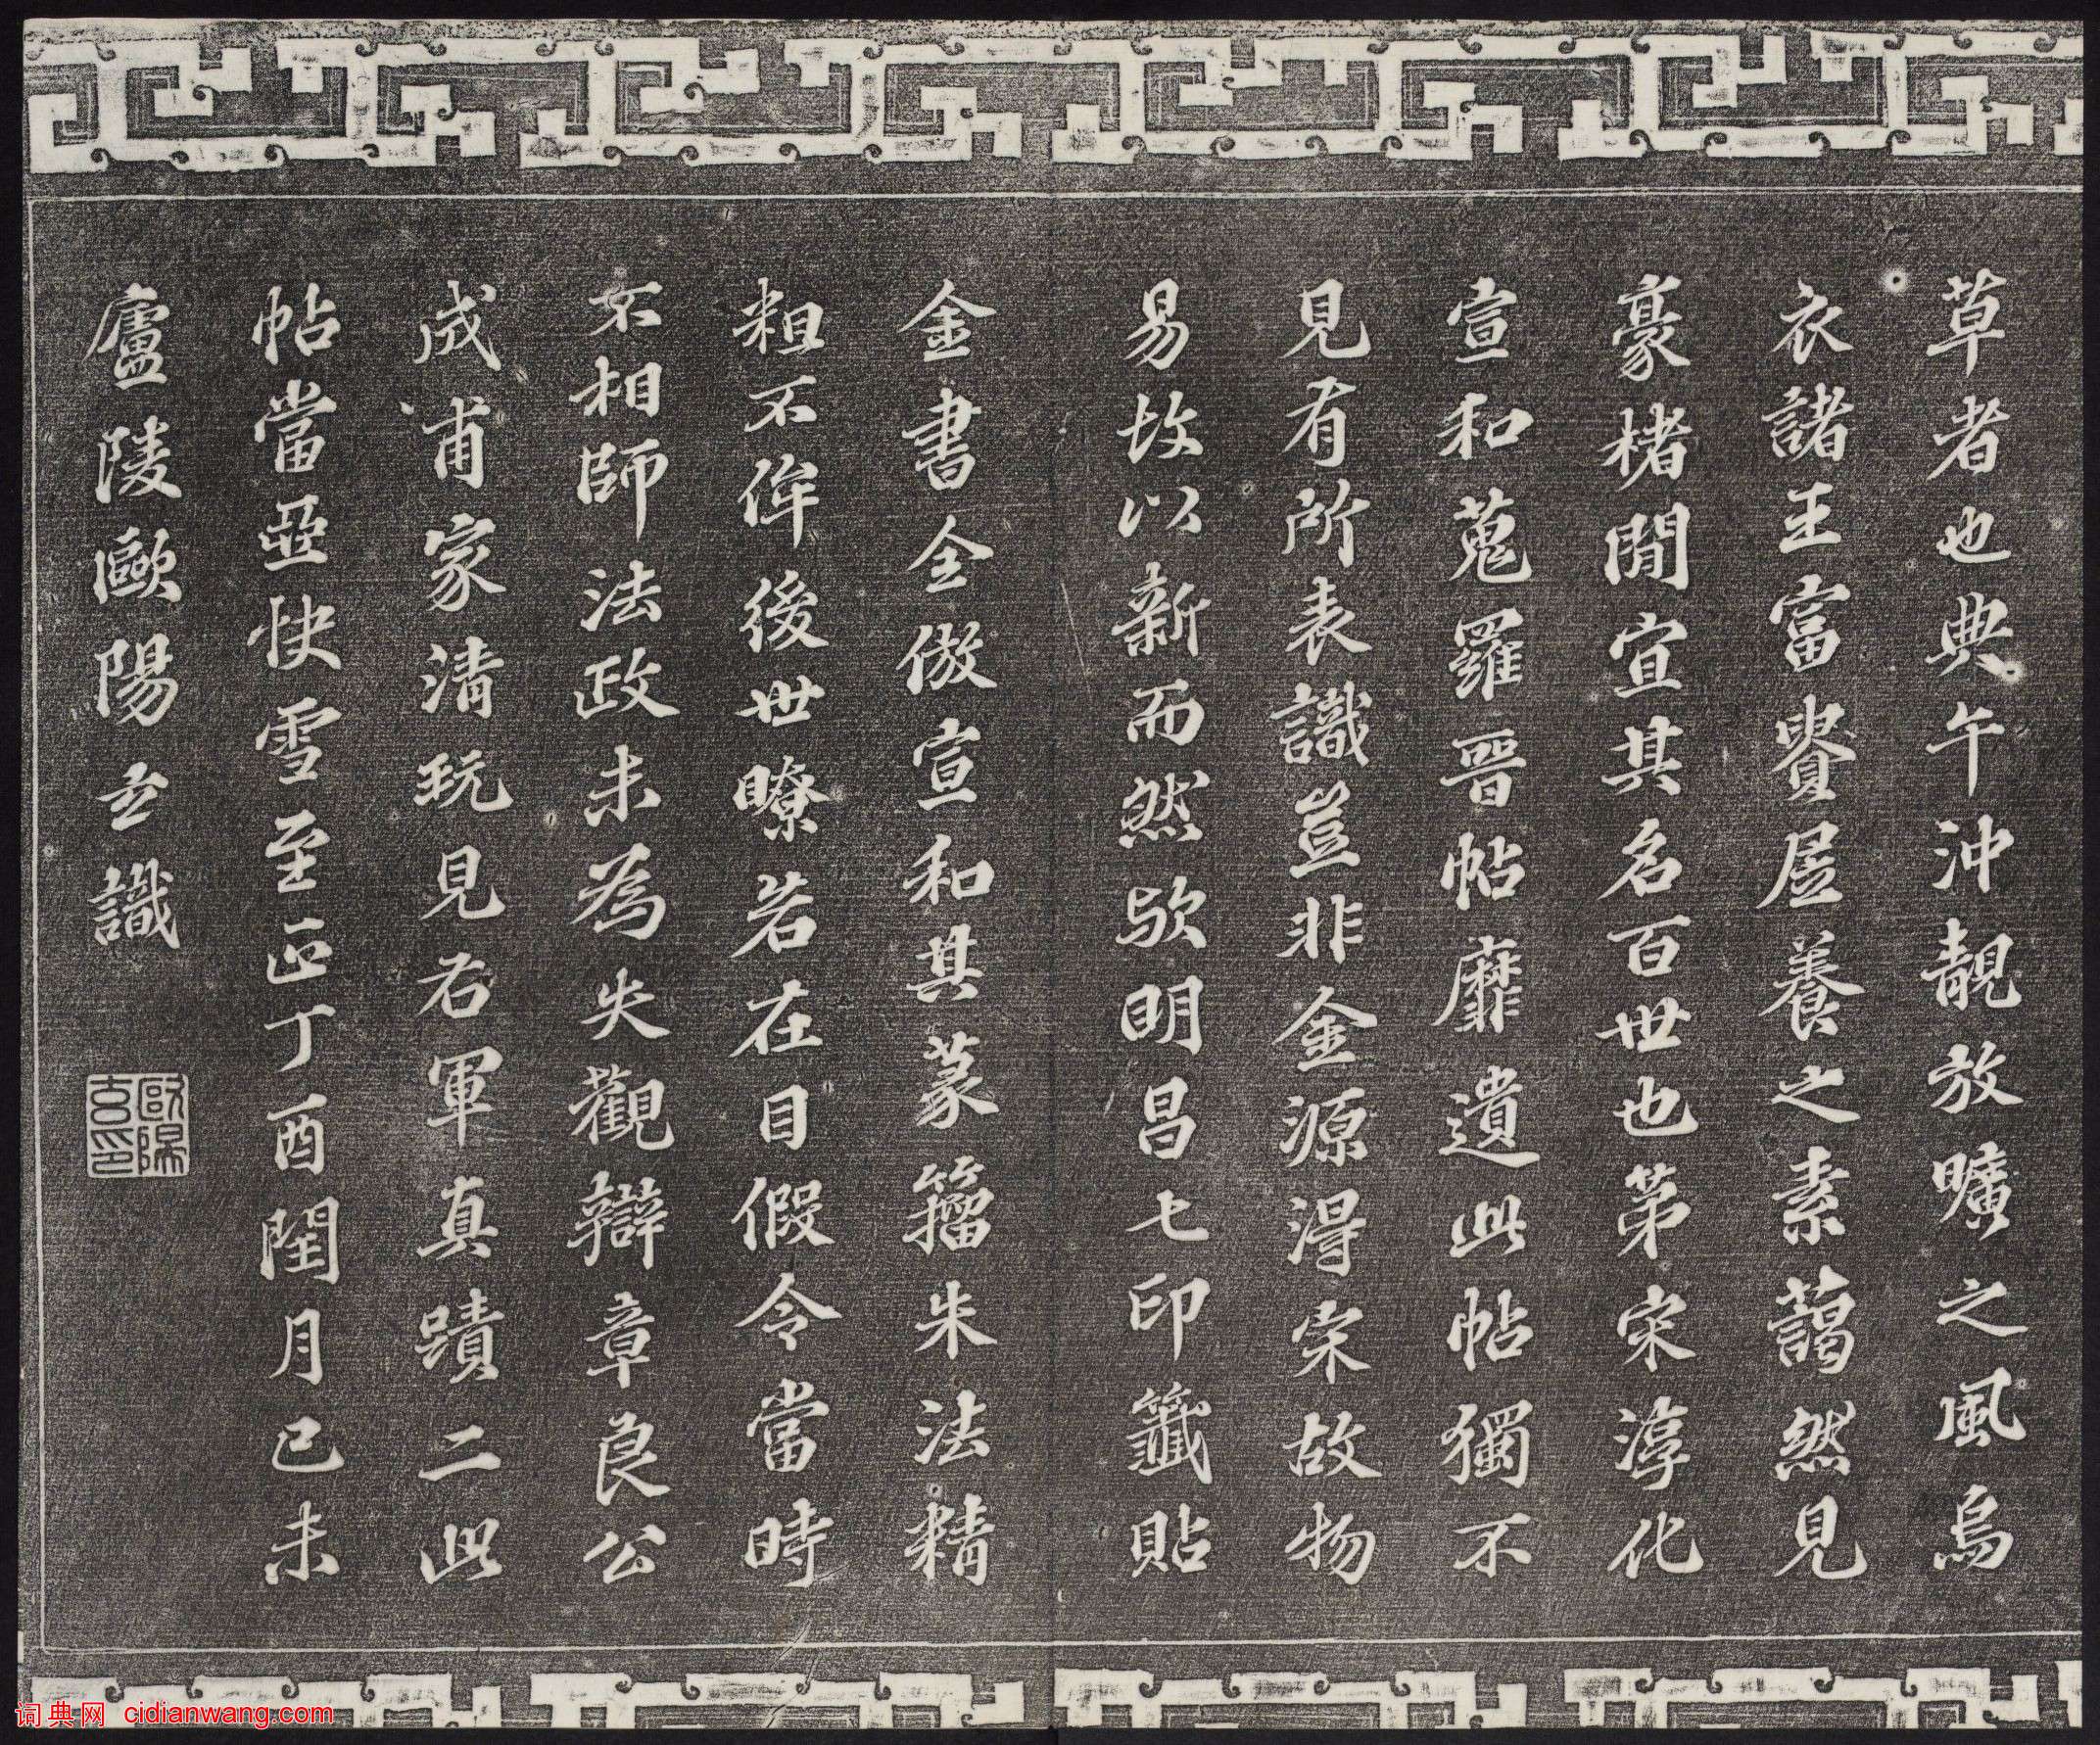 草者也典午沖靚放曠之風烏
衣諸王富貴居養之素藹然見
豪楮間宜其名百世也第宋淳化
宣和蒐羅晉帖靡遺此帖獨不
見有所表識豈非金源得宋故物
易故以新而然歟明昌七印籤貼
金書全倣宣和其篆籀朱法精
粗不侔後世瞭若在目假令當時
不相師法政未為失觀辯章良公
成甫家清玩見右軍真蹟二此
帖當亞快雪至正丁酉閏月己未
廬陵歐陽玄識
歐陽玄印
词典网 cidianwang.com